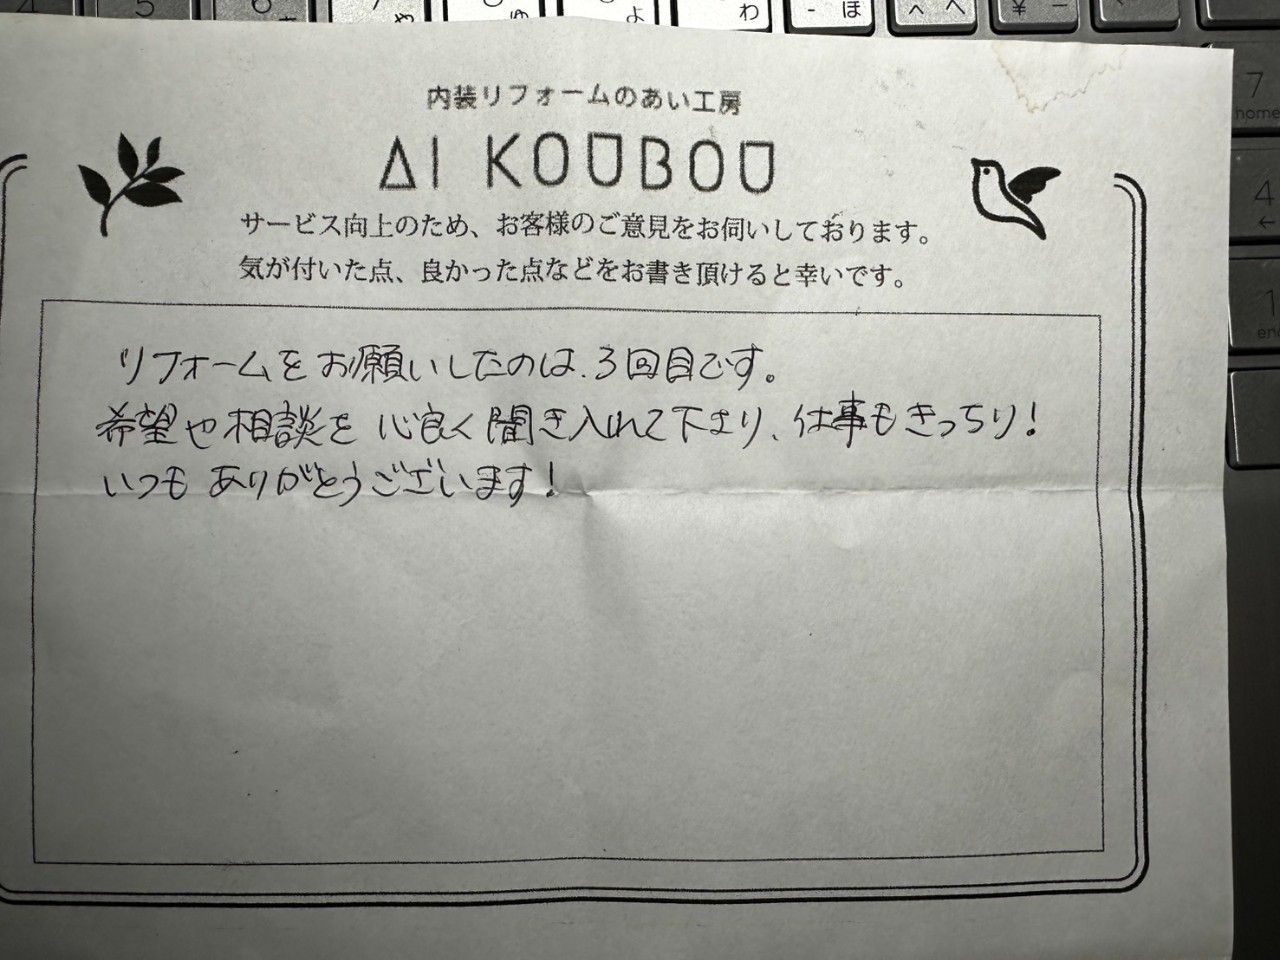 内装リフォームのあい工房
AI KOUBOU
サービス向上のため、お客様のご意見をお伺いしております。
気が付いた点、良かった点などをお書き頂けると幸いです。
リフォームをお願いしたのは、3回目です。
希望や相談を心良く聞き入れて下さり、仕事もきっちり!
いつもありがとうございます!
4 5 6 7 や ゆ よ わ - ほ へ へ ¥ ー
7
home
4
←
1